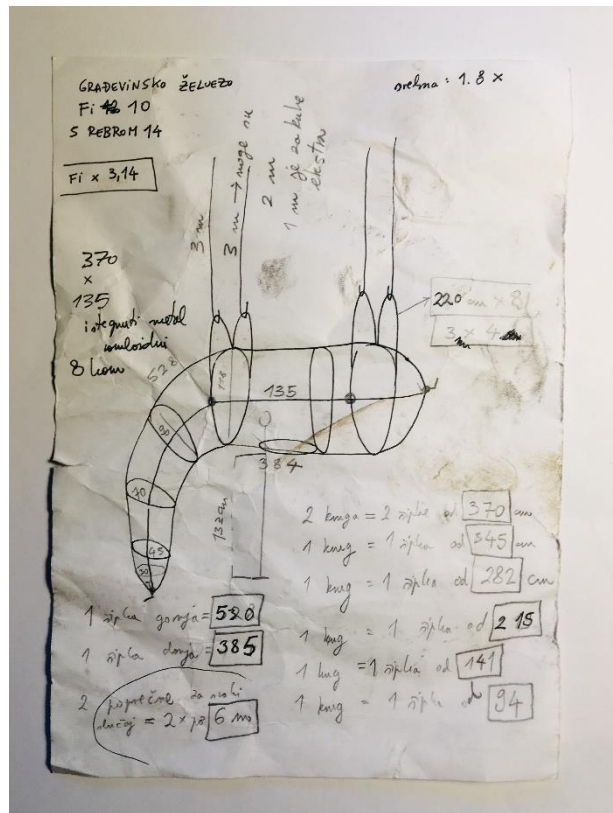 GRAĐEVINSKO ŽELJEZO
Fi 10
S REBROM 14
Fi x 3,14
srebrna = 1.8 x
3 m
3 m → noge su
2 m
1 m je za kuke
ekstra
370
x
135
istegnuti metal
romboidni
8 kom
220 cm x 8
3 m x 4
528
118
135
90
384
70
132 cm
45
30
2 kruga = 2 šipke od 370 cm
1 krug = 1 šipka od 345 cm
1 krug = 1 šipka od 282 cm
1 krug = 1 šipka od 215
1 krug = 1 šipka od 141
1 krug = 1 šipka od 94
1 šipka gornja = 520
1 šipka donja = 385
2 poprečne za svaki
slučaj = 2 x po 6 m